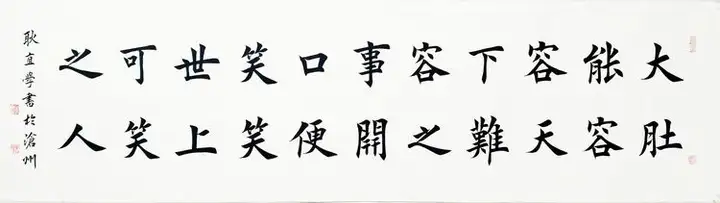 大肚
能容
容天
下難
容之
事開
口便
笑笑
世上
可笑
之人
耿直學書於滄州